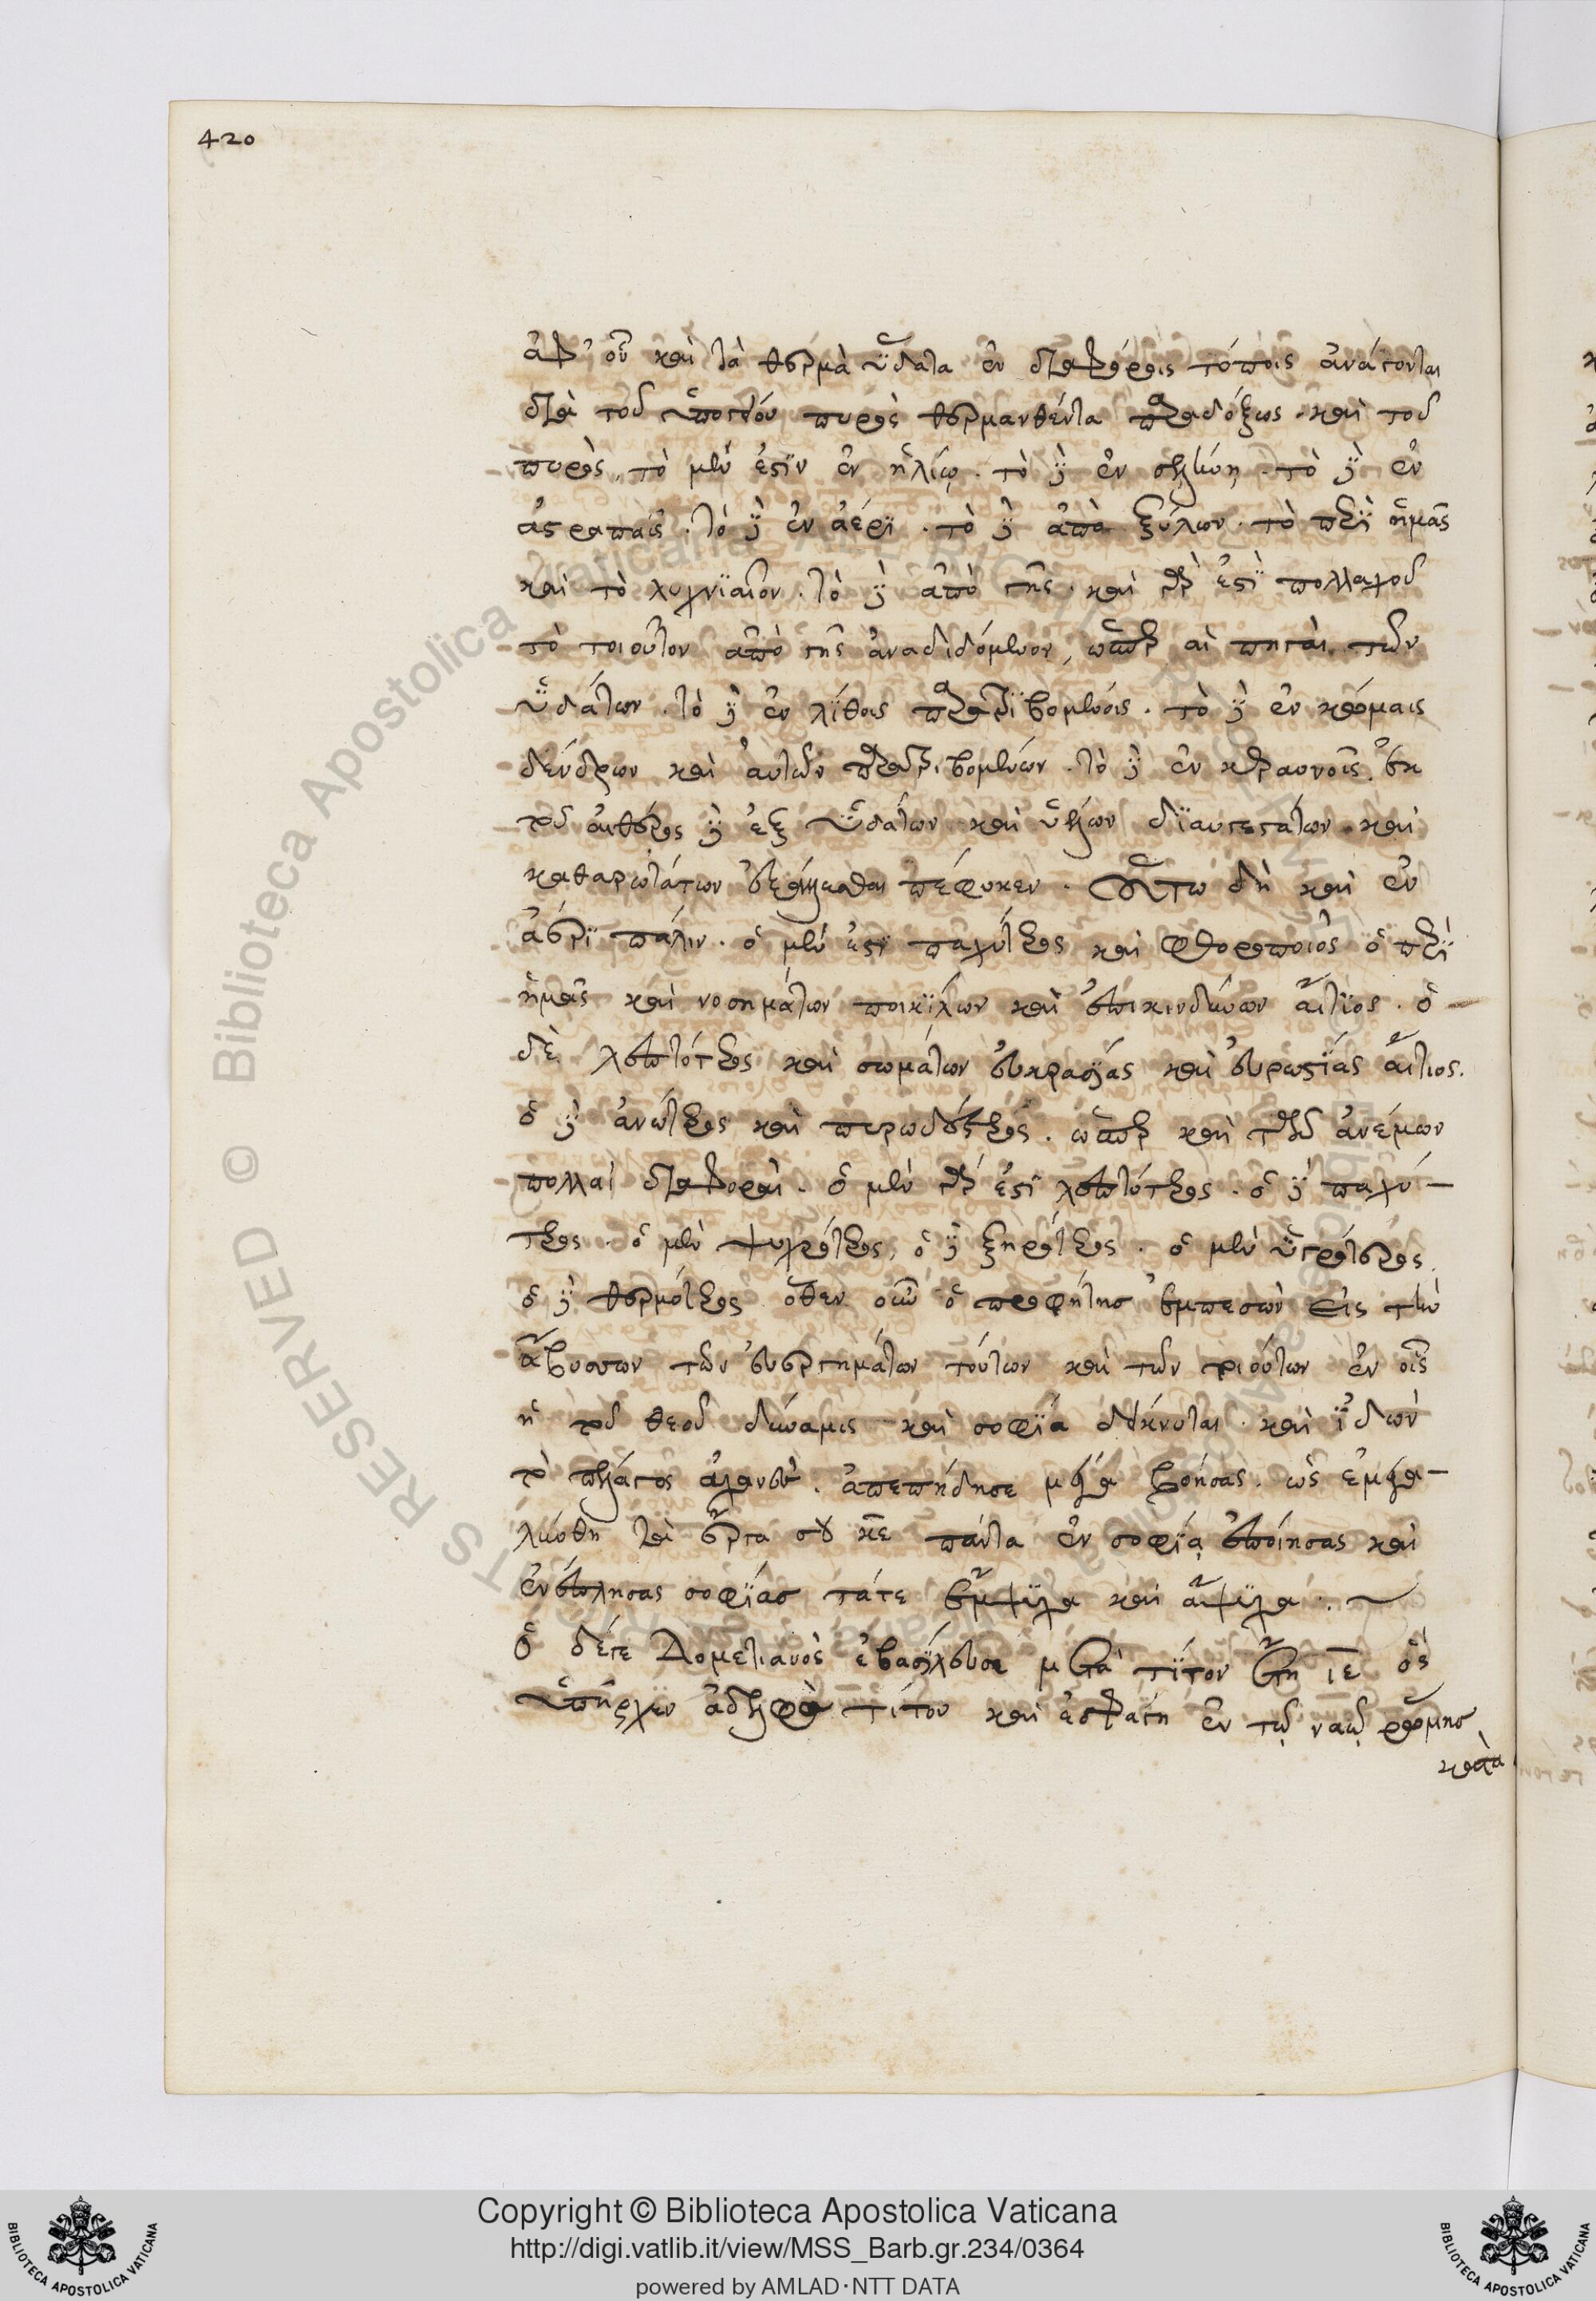 420
ἀφ' οὗ καὶ τὰ θερμὰ ὕδατα ἐν διαφόροις τόποις ἀνάγονται
διὰ τοῦ ὑπογείου πυρὸς θερμανθέντα παραδόξως. καὶ τοῦ
πυρὸς, τὸ μὲν ἐστὶν ἐν ἡλίῳ. τὸ δὲ ἐν σελήνῃ. τὸ δὲ ἐν
ἀστραπαῖς. τὸ δὲ ἐν ἀέρϊ. τὸ δὲ ἀπὸ ξύλων. τὸ περὶ ἡμᾶς
καὶ τὸ λυχνϊαῖον. τὸ δὲ ἀπὸ γῆς. καὶ γὰρ ἐστὶ πολλαχοῦ
τὸ τοιοῦτον ἀπὸ γῆς ἀναδιδόμενον, ὥσπερ αἱ πηγαὶ τῶν
ὑδάτων. τὸ δὲ ἐν λίθοις παρατριβομένοις. τὸ δὲ ἐν κόμαις
δένδρων καὶ αὐτῶν παρατριβομένων. τὸ δὲ ἐν κεραυνοῖς. ἐκ
τοῦ αἰθέρος δὲ ἐξ ὑδάτων καὶ ὑελίων διαυγεστάτων καὶ
καθαρωτάτων ἐξάπτεσθαι πέφυκεν. Οὕτω δὴ καὶ ἐν
ἀέρϊ πάλιν. ὁ μὲν ἐστι παχύτερος καὶ φθοροποιὸς ὁ περὶ
ἡμᾶς καὶ νοσημάτων ποικίλων καὶ ἐπικινδύνων αἴτϊος. ὁ
δὲ λεπτότερος καὶ σωμάτων εὐκρασίας καὶ εὐρωστίας αἴτιος.
ὁ δὲ ἀνώτερος καὶ πυρωδέστερος. ὥσπερ καὶ τῶν ἀνέμων
πολλαὶ διαφοραὶ. ὁ μὲν γὰρ ἐστὶ λεπτότερος. ὁ δὲ παχύ-
τερος. ὁ μὲν ψυχρότερος, ὁ δὲ ξηρότερος. ὁ μὲν ὑγρότερος,
ὁ δὲ θερμότερος ὅθεν οὖν ὁ προφήτησ ἐμπεσὼν εἰς τὴν
ἄβυσσον τῶν εὐεργετημάτων τούτων καὶ τῶν τοιούτων ἐν οἷς
ἡ τοῦ θεοῦ δύναμις καὶ σοφϊα δείκνυται. καὶ ἰδὼν
τὸ πέλαγος ἀχανὲς. ἀπεπήδησε μέγα βοήσας. ὡς ἐμεγα-
λύνθη τὰ ἔργα σου κε πάντα ἐν σοφίᾳ ἐποίησας καὶ
ἐνέπλησας σοφίασ τάτε ἔμψυχα καὶ ἄψυχα. ~
Ὁ δέγε Δομετιανὸς ἐβασίλευσε μετὰ τίτον ἔτη ιε ὃς
ὑπῆρχεν ἀδελφὸς τίτου καὶ ἐσφάγη ἐν τῷ ναῷ ρώμησ
κατὰ
Copyright © Biblioteca Apostolica Vaticana
http://digi.vatlib.it/view/MSS_Barb.gr.234/0364
powered by AMLAD·NTT DATA